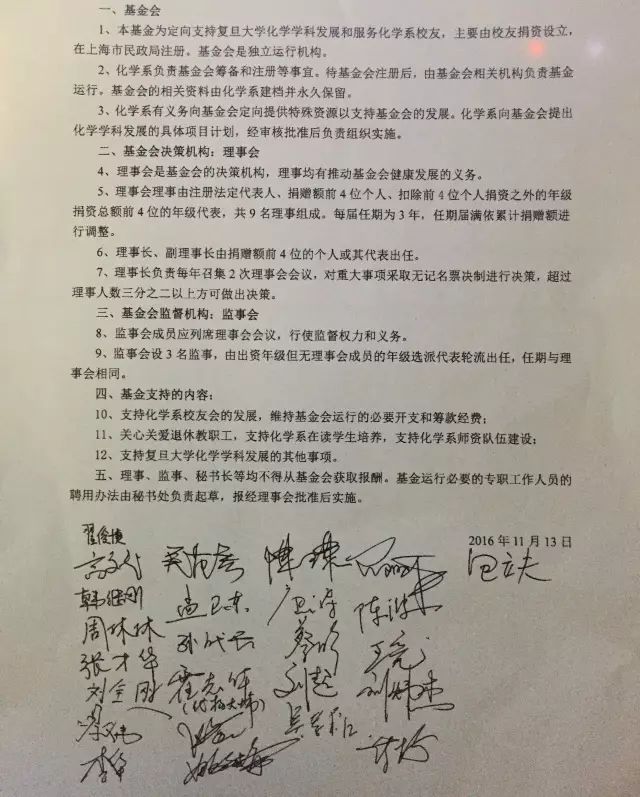 一、基金会
1、本基金为定向支持复旦大学化学学科发展和服务化学系校友，主要由校友捐资设立，
在上海市民政局注册。基金会是独立运行机构。
2、化学系负责基金会筹备和注册等事宜。待基金会注册后，由基金会相关机构负责基金
运行。基金会的相关资料由化学系建档并永久保留。
3、化学系有义务向基金会定向提供特殊资源以支持基金会的发展。化学系向基金会提出
化学学科发展的具体项目计划，经审核批准后负责组织实施。
二、基金会决策机构：理事会
4、理事会是基金会的决策机构，理事均有推动基金会健康发展的义务。
5、理事会理事由注册法定代表人、捐赠额前4位个人、扣除前4位个人捐资之外的年级
捐资总额前4位的年级代表，共9名理事组成。每届任期为3年，任期届满依累计捐赠额进
行调整。
6、理事长、副理事长由捐赠额前4位的个人或其代表出任。
7、理事长负责每年召集2次理事会会议，对重大事项采取无记名票决制进行决策，超过
理事人数三分之二以上方可做出决策。
三、基金会监督机构：监事会
8、监事会成员应列席理事会会议，行使监督权力和义务。
9、监事会设3名监事，由出资年级但无理事会成员的年级选派代表轮流出任，任期与理
事会相同。
四、基金支持的内容：
10、支持化学系校友会的发展，维持基金会运行的必要开支和筹款经费；
11、关心关爱退休教职工，支持化学系在读学生培养，支持化学系师资队伍建设；
12、支持复旦大学化学学科发展的其他事项。
五、理事、监事、秘书长等均不得从基金会获取报酬。基金运行必要的专职工作人员的
聘用办法由秘书处负责起草，报经理事会批准后实施。
2016年11月13日
韩继刚 孟卫东 陈洪
周林林 孙代 蔡明
张才华 王亮
霍 刘超
李华